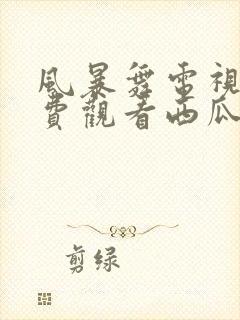 風暴舞電視
費觀看西瓜
剪绿